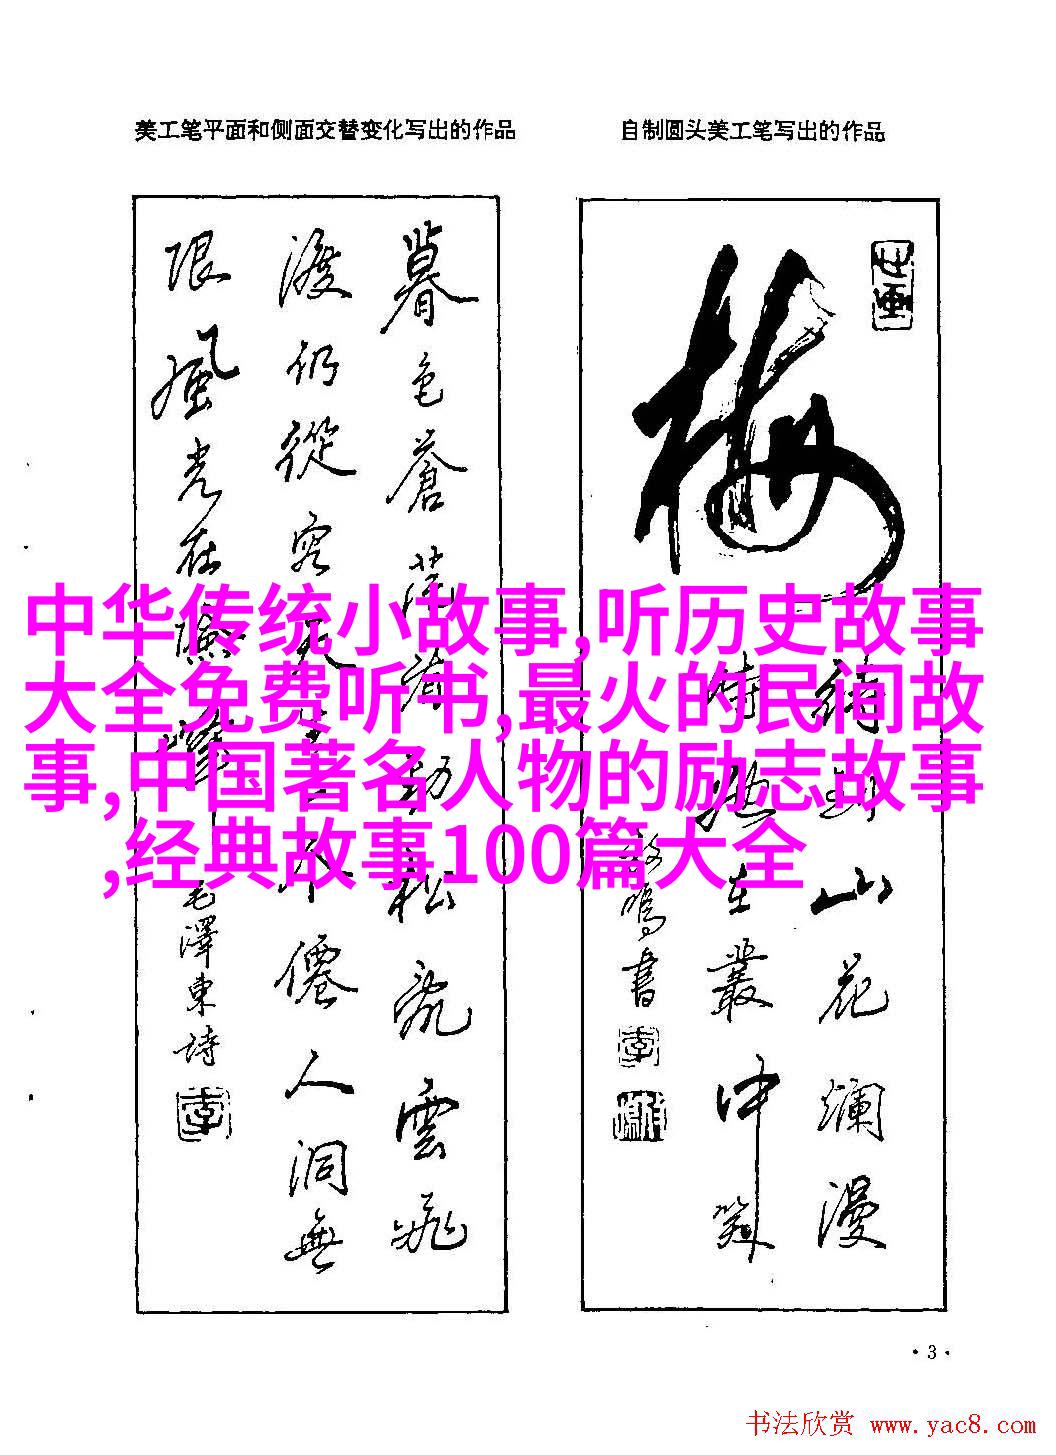 美工笔平面和侧面交替变化写出的作品
自制圆头美工笔写出的作品
暮色蒼茫看勁松亂雲飛
渡仍從容天生一个僊人洞無
限風光在險峰
毛澤東詩
梅
待到山花爛漫
時她在叢中笑
書
中华传统小故事,听历史故事
大全免费听书,最火的民间故
事,中国著名人物的励志故事
,经典故事100篇大全
·3·
书法欣赏 www.yac8.com